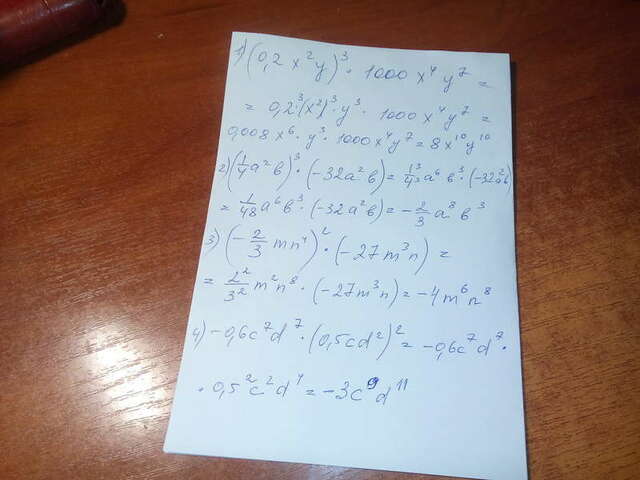 1) (0,2 x²y)³ · 1000 x⁴ y⁷ =
= 0,2³ · (x²)³ · y³ · 1000 x⁴ y⁷ =
0,008 x⁶ · y³ · 1000 x⁴ y⁷ = 8 x¹⁰ y¹⁰
2) (1/4 a² в)³ · (-32a² в) = 1³/4³ a⁶ в³ · (-32a²в)
= 1/48 a⁶ в³ · (-32a² в) = -2/3 a⁸ в³
3) (-2/3 mn⁴)² · (-27 m³ n) =
= 2²/3² m² n⁸ · (-27m³ n) = -4 m⁶ n⁸
4) -0,6c⁷d⁷ · (0,5cd²)² = -0,6c⁷d⁷ ·
· 0,5² c² d⁴ = -3c⁹ d¹¹